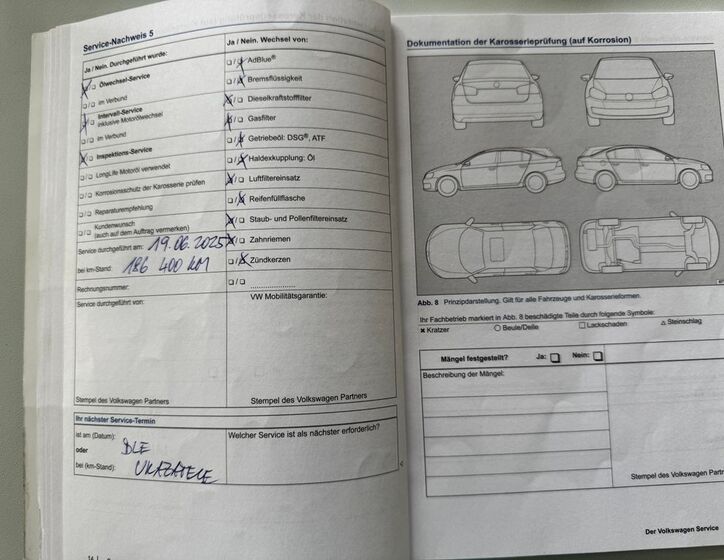 Service-Nachweis 5
Ja / Nein. Durchgeführt wurde:
☒/☐ Ölwechsel-Service
☐/☐ im Verbund
☒/☐ Intervall-Service
inklusive Motorölwechsel
☐/☐ im Verbund
☒/☐ Inspektions-Service
☐/☐ LongLife Motoröl verwendet
☐/☐ Korrosionsschutz der Karosserie prüfen
☐/☐ Reparaturempfehlung
☐/☐ Kundenwunsch
(auch auf dem Auftrag vermerken)
Service durchgeführt am: 19.06.2025
bei km-Stand: 186 400 KM
Rechnungsnummer:
Service durchgeführt von:
Stempel des Volkswagen Partners
Ja / Nein. Wechsel von:
☐/☒ AdBlue®
☐/☒ Bremsflüssigkeit
☒/☐ Dieselkraftstofffilter
Gasfilter
☐/☒ Getriebeöl: DSG®, ATF
☐/☒ Haldexkupplung: Öl
☒/☐ Luftfiltereinsatz
☐/☒ Reifenfüllflasche
☒/☐ Staub- und Pollenfiltereinsatz
☒/☐ Zahnriemen
☐/☒ Zündkerzen
☐/☐ ....................
VW Mobilitätsgarantie:
Stempel des Volkswagen Partners
Ihr nächster Service-Termin
ist am (Datum):
oder DLE
bei (km-Stand): UKAZATELE
Welcher Service ist als nächster erforderlich?
Dokumentation der Karosserieprüfung (auf Korrosion)
Abb. 8 Prinzipdarstellung. Gilt für alle Fahrzeuge und Karosserieformen.
Ihr Fachbetrieb markiert in Abb. 8 beschädigte Teile durch folgende Symbole:
✖ Kratzer ○ Beule/Delle □ Lackschaden △ Steinschlag
Mängel festgestellt? Ja: ☐ Nein: ☐
Beschreibung der Mängel:
Stempel des Volkswagen Partn
Der Volkswagen Service